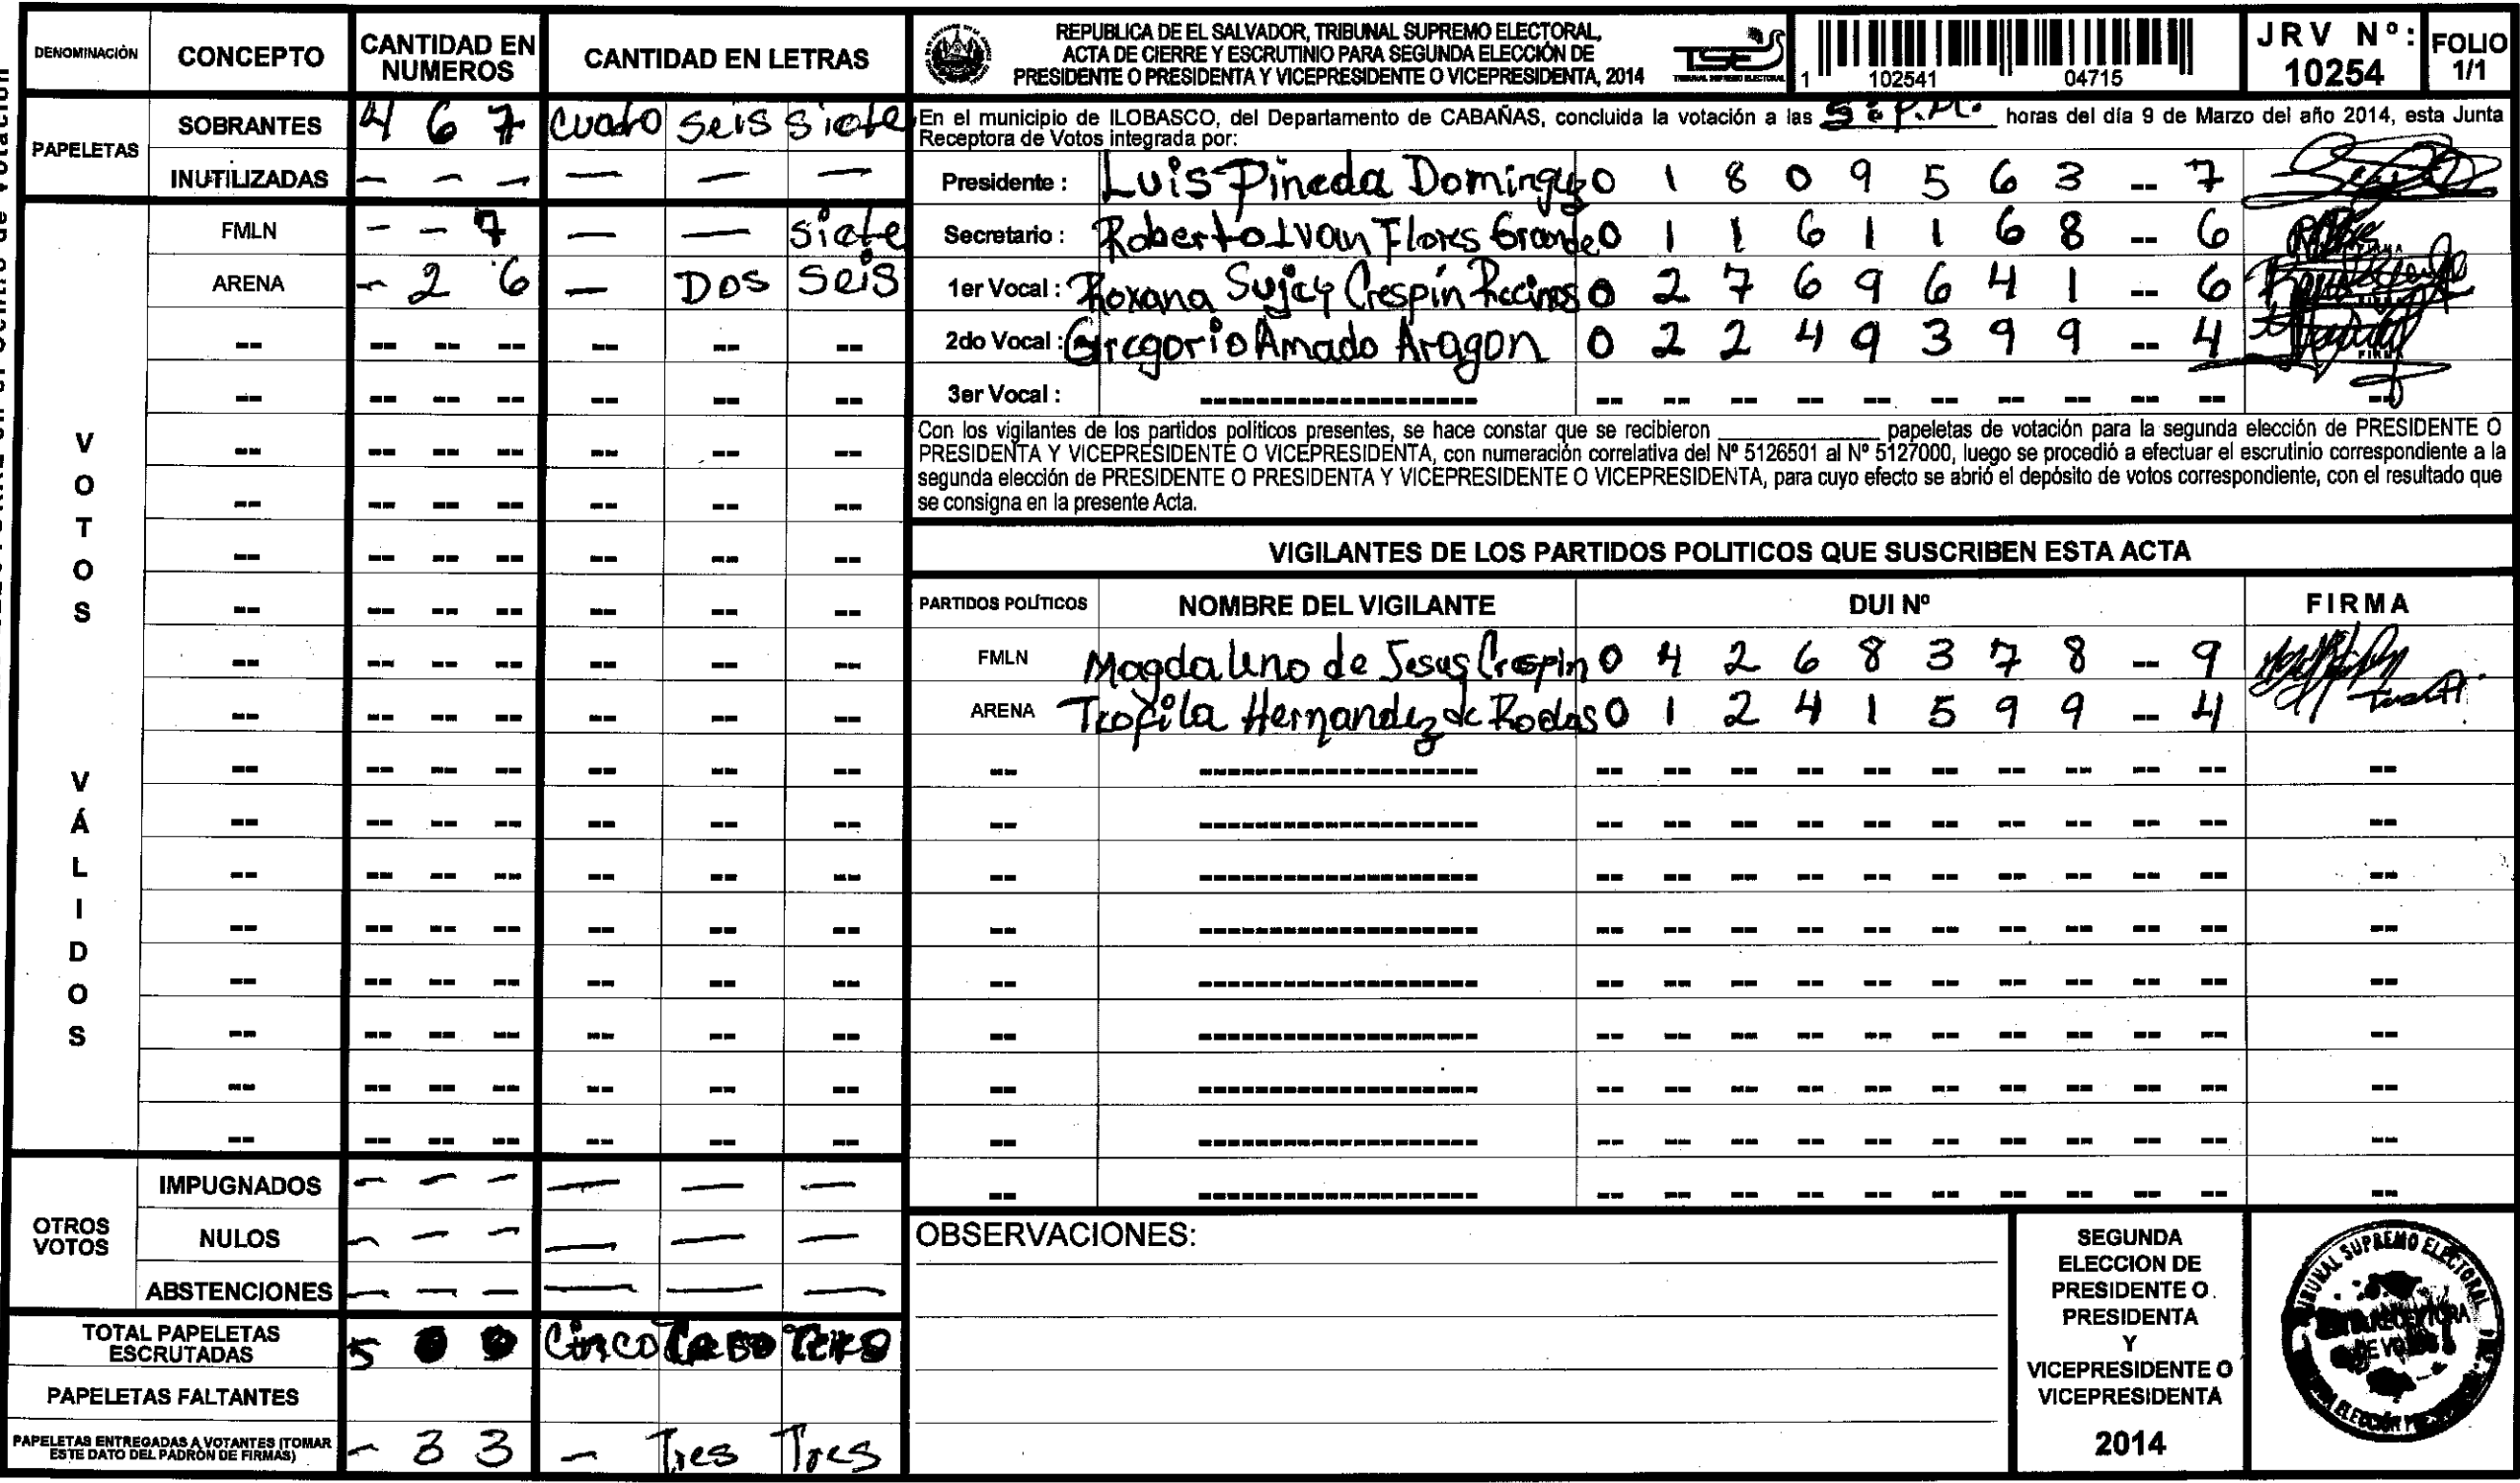 DENOMINACIÓN CONCEPTO CANTIDAD EN NUMEROS CANTIDAD EN LETRAS
PAPELETAS
SOBRANTES 4 6 7 cuatro seis siete
INUTILIZADAS - - - - - -
VOTOS VÁLIDOS
FMLN - - 7 - - siete
ARENA - 2 6 - DOS seis
OTROS VOTOS
IMPUGNADOS - - - - - -
NULOS - - - - - -
ABSTENCIONES - - - - - -
TOTAL PAPELETAS ESCRUTADAS 5 0 0 Cinco
PAPELETAS FALTANTES
PAPELETAS ENTREGADAS A VOTANTES (TOMAR ESTE DATO DEL PADRÓN DE FIRMAS) - 3 3 - Tres Tres
REPUBLICA DE EL SALVADOR, TRIBUNAL SUPREMO ELECTORAL,
ACTA DE CIERRE Y ESCRUTINIO PARA SEGUNDA ELECCIÓN DE
PRESIDENTE O PRESIDENTA Y VICEPRESIDENTE O VICEPRESIDENTA, 2014
TSE
TRIBUNAL SUPREMO ELECTORAL
1 102541 04715
JRV Nº: 10254
FOLIO 1/1
En el municipio de ILOBASCO, del Departamento de CABAÑAS, concluida la votación a las horas del día 9 de Marzo del año 2014, esta Junta
Receptora de Votos integrada por:
Presidente : Luis Pineda Domingo 0 1 8 0 9 5 6 3 -- 7
Secretario : Roberto Ivan Flores Grande 0 1 1 6 1 1 6 8 -- 6
1er Vocal : Roxana Sujey Crespín Recinos 0 2 7 6 9 6 4 1 -- 6
2do Vocal : Gregorio Amado Aragon 0 2 2 4 9 3 9 9 -- 4
3er Vocal :
Con los vigilantes de los partidos politicos presentes, se hace constar que se recibieron ____ papeletas de votación para la segunda elección de PRESIDENTE O
PRESIDENTA Y VICEPRESIDENTE O VICEPRESIDENTA, con numeración correlativa del Nº 5126501 al Nº 5127000, luego se procedió a efectuar el escrutinio correspondiente a la
segunda elección de PRESIDENTE O PRESIDENTA Y VICEPRESIDENTE O VICEPRESIDENTA, para cuyo efecto se abrió el depósito de votos correspondiente, con el resultado que
se consigna en la presente Acta.
VIGILANTES DE LOS PARTIDOS POLITICOS QUE SUSCRIBEN ESTA ACTA
PARTIDOS POLÍTICOS NOMBRE DEL VIGILANTE DUI Nº FIRMA
FMLN Magdaleno de Jesus Crespin 0 4 2 6 8 3 7 8 -- 9
ARENA Teofila Hernandez de Rodas 0 1 2 4 1 5 9 9 -- 4
OBSERVACIONES:
SEGUNDA
ELECCION DE
PRESIDENTE O
PRESIDENTA
Y
VICEPRESIDENTE O
VICEPRESIDENTA
2014
TRIBUNAL SUPREMO ELECTORAL